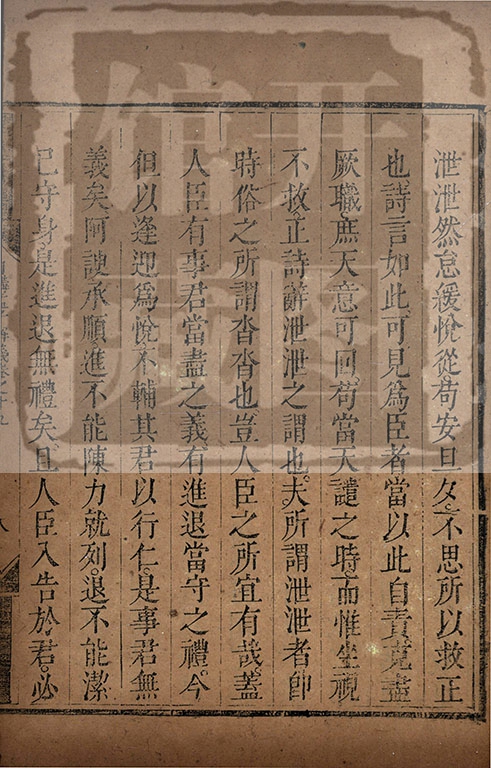 泄泄然怠緩悅從苟安旦夕不思所以救正
也詩言如此可見爲臣者當以此自責克盡
厥職庶天意可回苟當天譴之時而惟坐視
不救正詩辭泄泄之謂也夫所謂泄泄者卽
時俗之所謂沓沓也豈人臣之所宜有哉蓋
人臣有事君當盡之義有進退當守之禮今
但以逢迎爲悅不輔其君以行仁是事君無
義矣阿諛承順進不能陳力就列退不能潔
己守身是進退無禮矣且人臣入告於君必